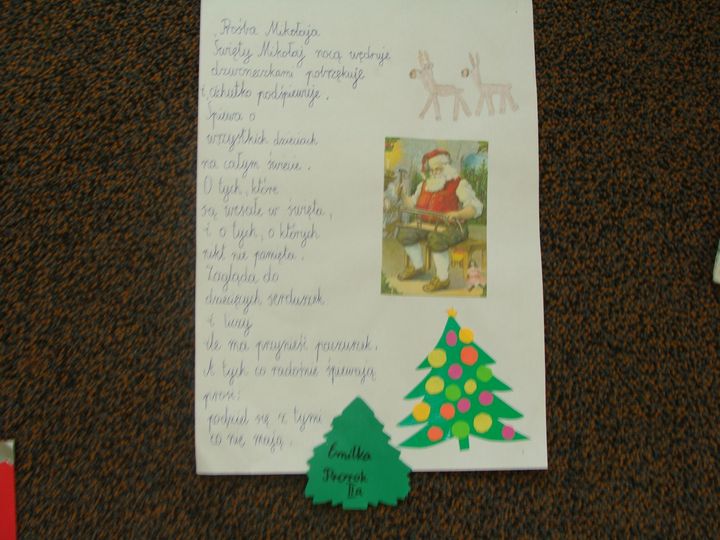 Prośba Mikołaja
Święty Mikołaj nocą wędruje
dzwoneczkami pobrzękuje
i cichutko podśpiewuje.
Śpiewa o
wszystkich dzieciach
na całym świecie.
O tych, które
są wesołe w święta,
i o tych, o których
nikt nie pamięta.
Zagląda do
dziecięcych serduszek
i liczy
ile ma przynieść paczuszek.
A tych co radośnie śpiewają
prosi:
podziel się z tymi
co nie mają.
Emilka
IIa